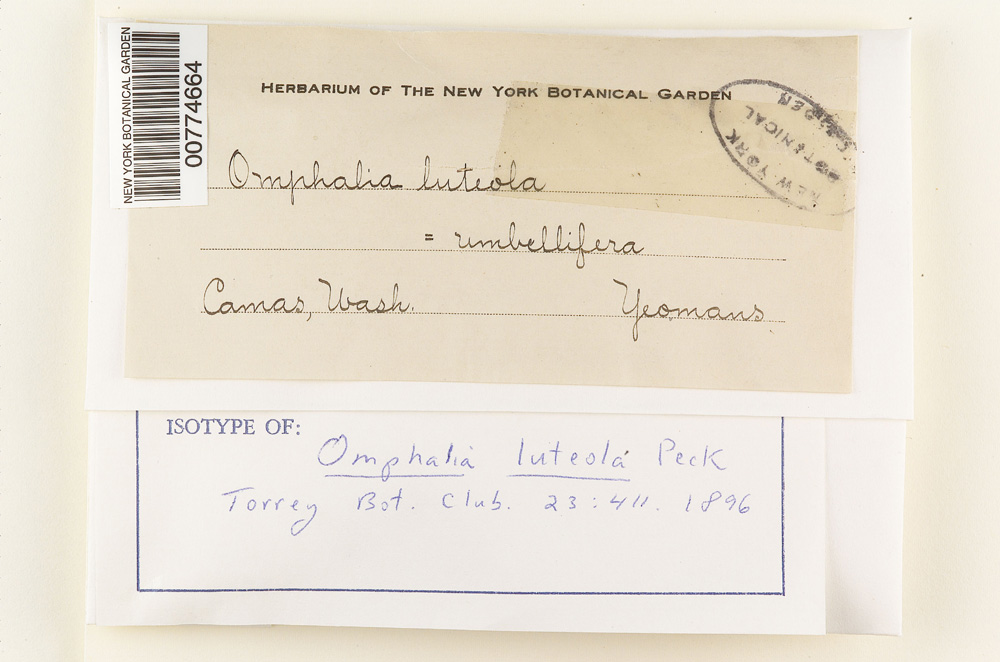 NEW YORK BOTANICAL GARDEN
00774664
HERBARIUM OF THE NEW YORK BOTANICAL GARDEN
NEW YORK
BOTANICAL
GARDEN
Omphalia luteola
= umbellifera
Camas, Wash. Yeomans
ISOTYPE OF:
Omphalia luteola Peck
Torrey Bot. Club. 23:411. 1896